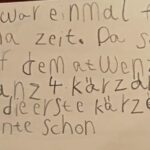 war einmal
a zeit. Da s
f dem atwenz
anz 4 kärza
die erste kärze
nte schon